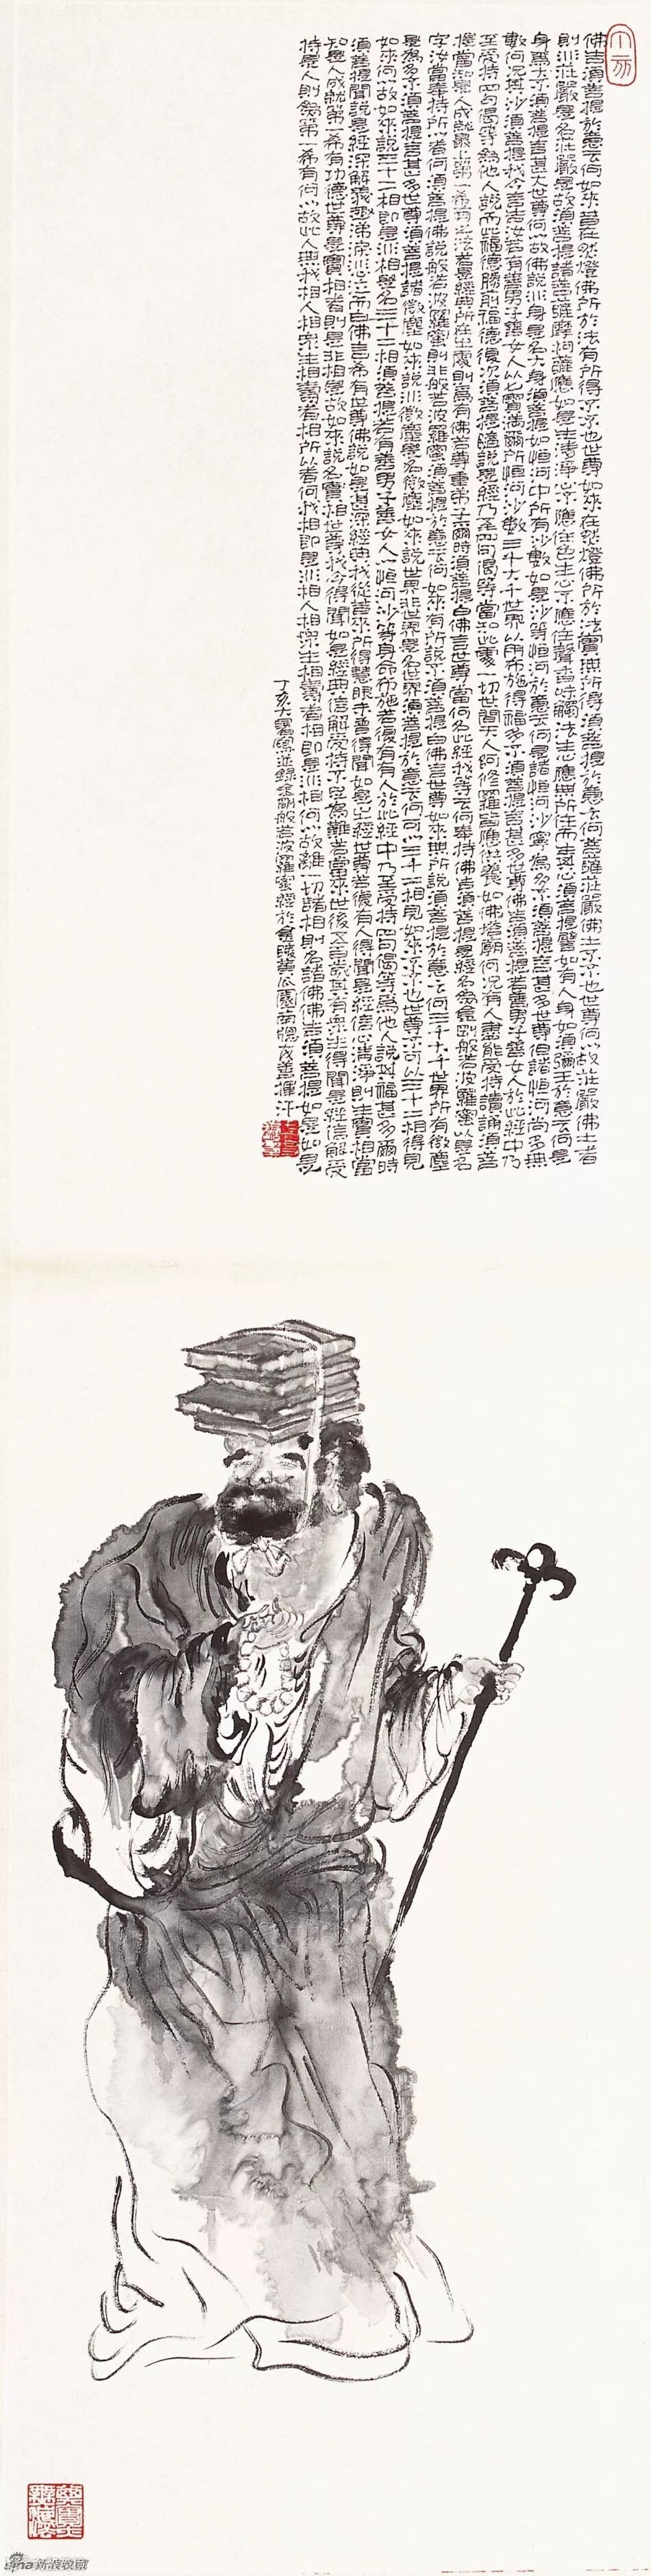 佛告須菩提於意云何如來昔在然燈佛所於法有所得不不也世尊如來在然燈佛所於法實無所得須菩提於意云何菩薩莊嚴佛土不不也世尊何以故莊嚴佛土者
則非莊嚴是名莊嚴是故須菩提諸菩薩摩訶薩應如是生清淨心不應住色生心不應住聲香味觸法生心應無所住而生其心須菩提譬如有人身如須彌王於意云何是
身為大不須菩提言甚大世尊何以故佛說非身是名大身須菩提如恒河中所有沙數如是沙等恒河於意云何是諸恒河沙寧為多不須菩提言甚多世尊但諸恒河尚多無
數何況其沙須菩提我今實言告汝若有善男子善女人以七寶滿爾所恒河沙數三千大千世界以用布施得福多不須菩提言甚多世尊佛告須菩提若善男子善女人於此經中乃
至受持四句偈等為他人說而此福德勝前福德復次須菩提隨說是經乃至四句偈等當知此處一切世間天人阿修羅皆應供養如佛塔廟何況有人盡能受持讀誦須菩
提當知是人成就最上第一希有之法若是經典所在之處則為有佛若尊重弟子爾時須菩提白佛言世尊當何名此經我等云何奉持佛告須菩提是經名為金剛般若波羅蜜以是名
字汝當奉持所以者何須菩提佛說般若波羅蜜則非般若波羅蜜須菩提於意云何如來有所說不須菩提白佛言世尊如來無所說須菩提於意云何三千大千世界所有微塵
是為多不須菩提言甚多世尊須菩提諸微塵如來說非微塵是名微塵如來說世界非世界是名世界須菩提於意云何可以三十二相見如來不不也世尊不可以三十二相得見
如來何以故如來說三十二相即是非相是名三十二相須菩提若有善男子善女人以恒河沙等身命布施若復有人於此經中乃至受持四句偈等為他人說其福甚多爾時
須菩提聞說是經深解義趣涕淚悲泣而白佛言希有世尊佛說如是甚深經典我從昔來所得慧眼未曾得聞如是之經世尊若復有人得聞是經信心清淨則生實相當
知是人成就第一希有功德世尊是實相者則是非相是故如來說名實相世尊我今得聞如是經典信解受持不足為難若當來世後五百歲其有眾生得聞是經信解受
持是人則為第一希有何以故此人無我相人相眾生相壽者相所以者何我相即是非相人相眾生相壽者相即是非相何以故離一切諸相則名諸佛佛告須菩提如是如是
丁亥大暑寫並錄金剛般若波羅蜜經於金陵黃瓜園南窗善揮汗
sina新浪收藏